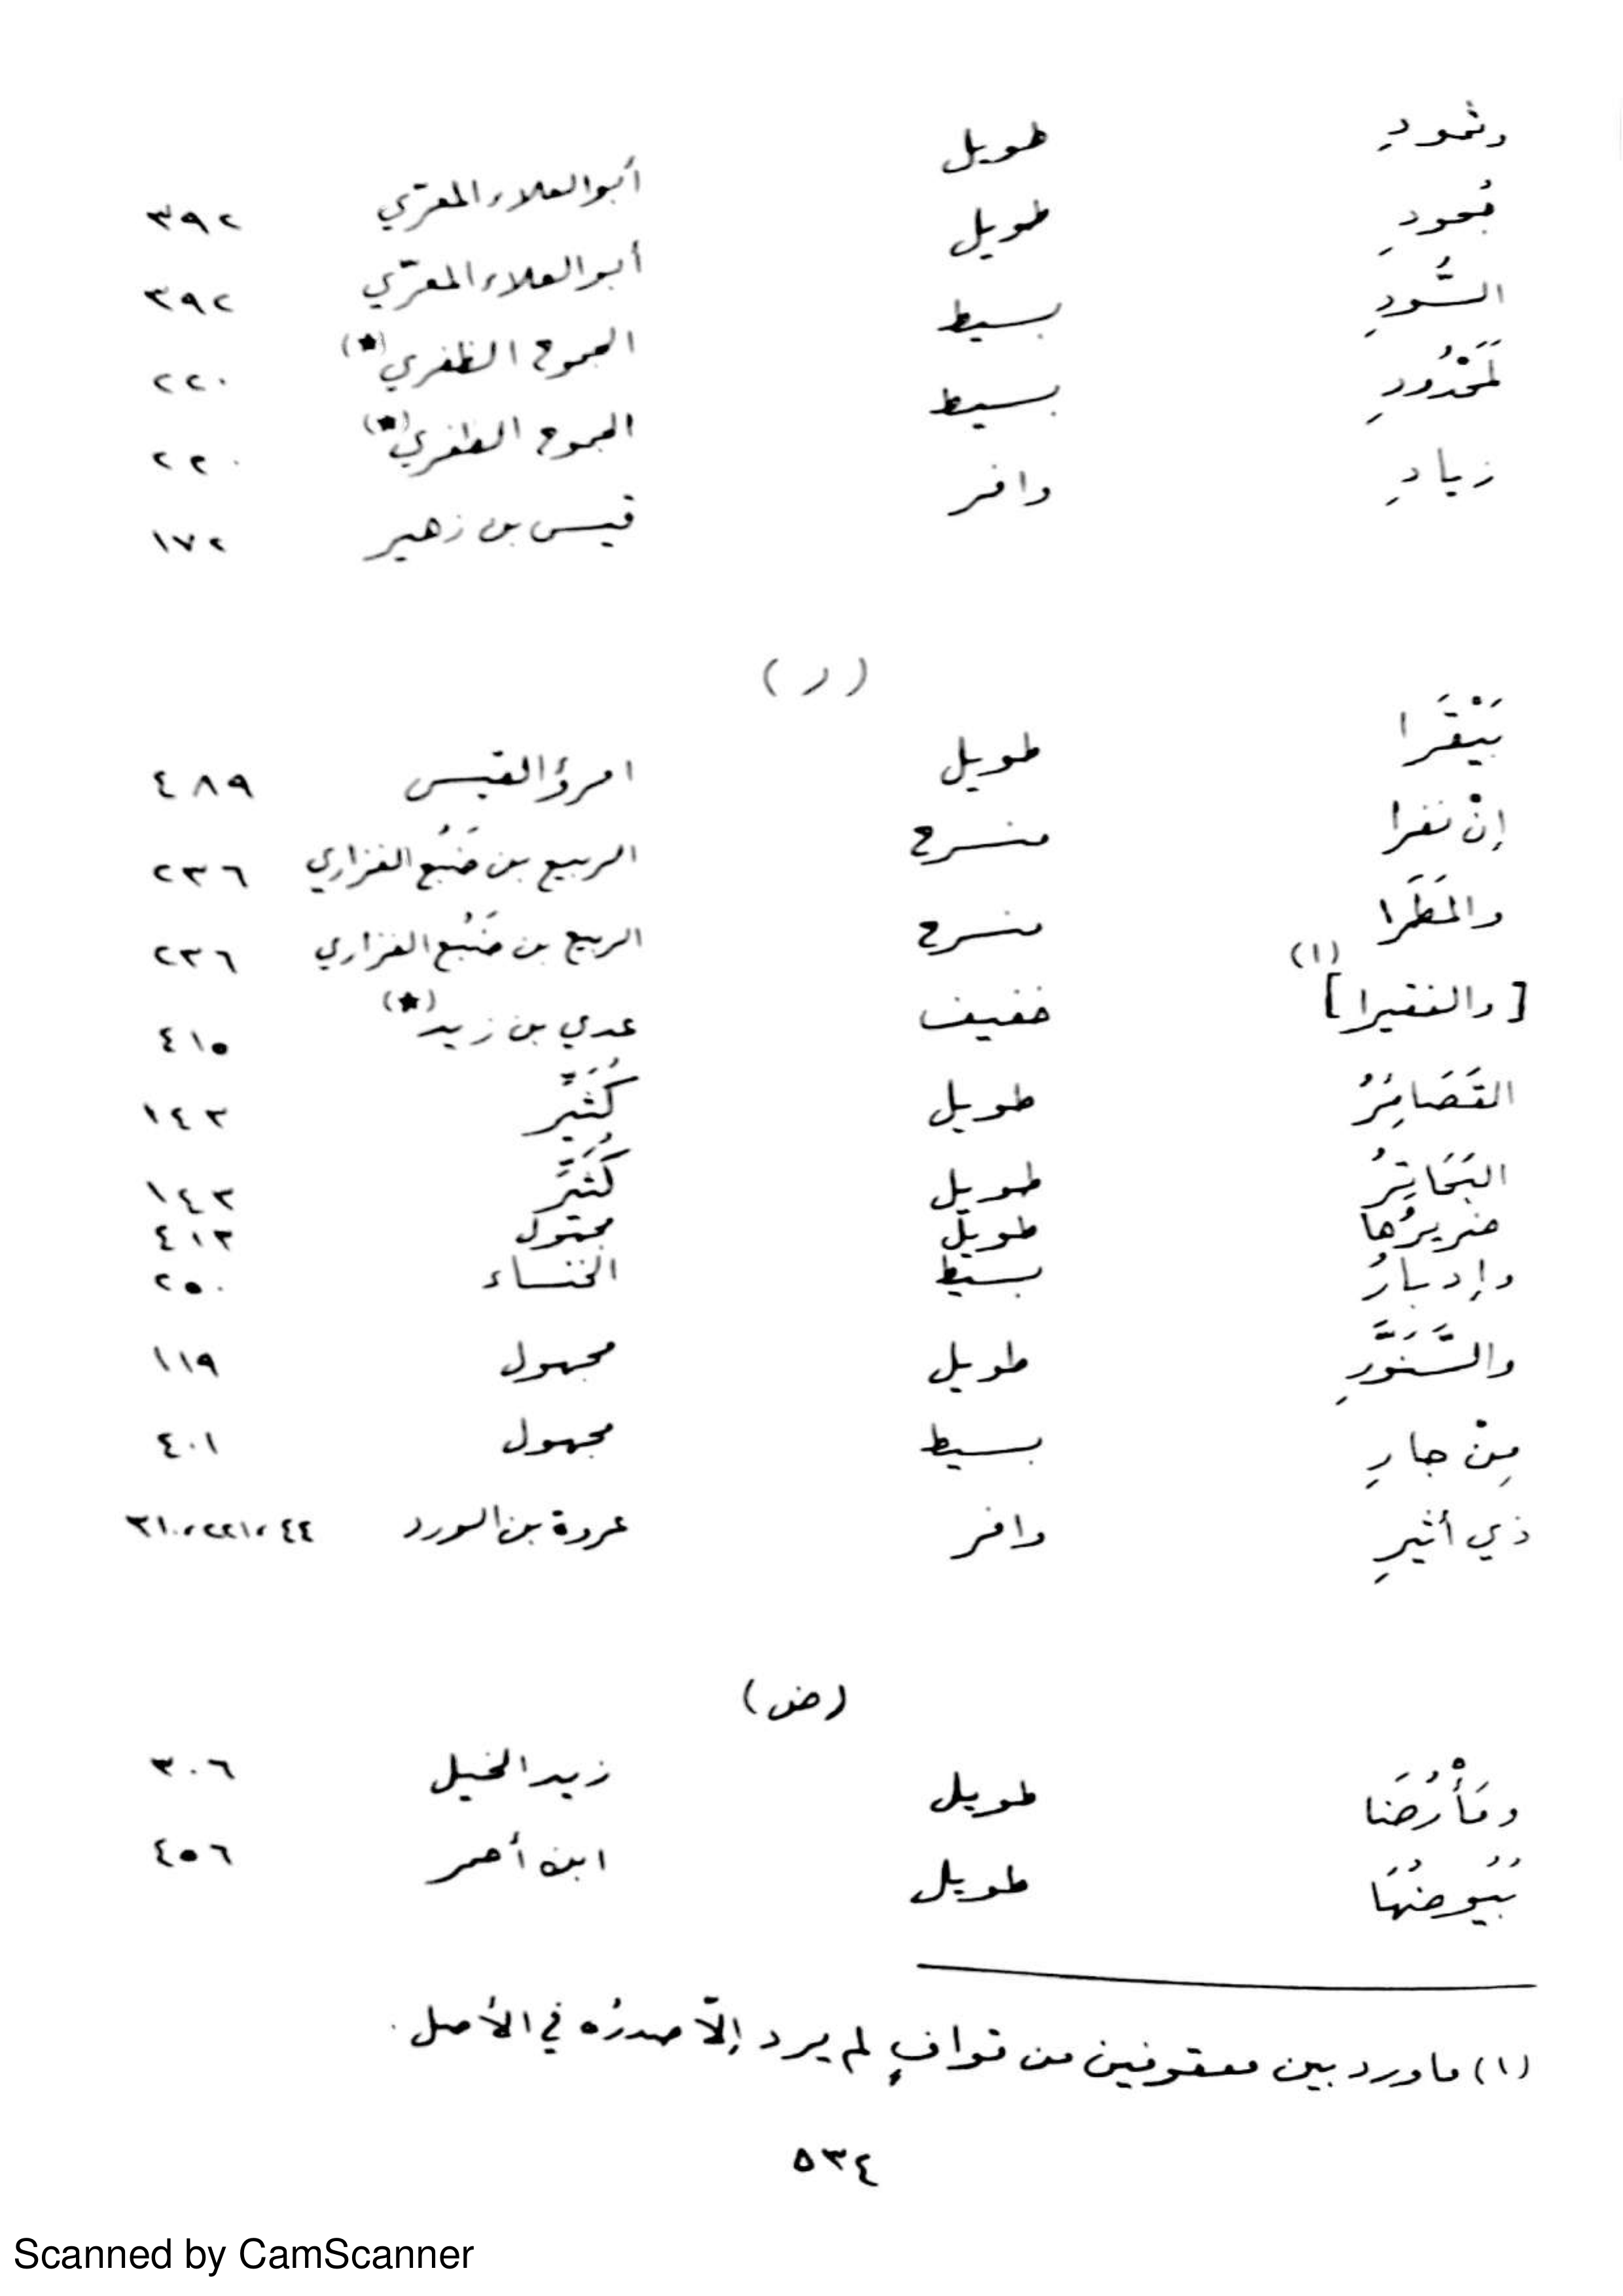 وثمودِ طويل أبو العلاء المعرّي ٣٩٢
بُعودِ طويل أبو العلاء المعرّي ٣٩٢
السُّودِ بسيط الجموح الظفري(★) ٢٢٠
لَمَحْدُودِ بسيط الجموح الظفري(★) ٢٢٠
زيادِ وافر قيس بن زهير ١٧٢
(ر)
بَيْقَرا طويل امرؤ القيس ٤٨٩
إنْ نفرا منسرح الربيع بن ضَبُع الفزاري ٢٣٦
والمَطَرا منسرح الربيع بن ضَبُع الفزاري ٢٣٦
[والفقيرا](١) خفيف عدي بن زيد(★) ٤١٥
القَصَائِرُ طويل كُثَيِّر ١٤٣
البَحَاتِرُ طويل كُثَيِّر ١٤٣
ضريرُها طويل مجهول ٤١٣
وإدبارُ بسيط الخنساء ٢٥٠
والسَّنَوَّرِ طويل مجهول ١١٩
مِنْ جارِ بسيط مجهول ٤٠١
ذي أثيرِ وافر عروة بن الورد ٤٤، ٢٢١، ٣١٠
(ض)
ومَأْرُضَا طويل زيد الخيل ٣٠٦
بُيُوضُهَا طويل ابن أحمر ٤٥٦
(١) ما ورد بين معقوفين من قوافٍ لم يرد إلّا صدرُه في الأصل.
٥٣٤
Scanned by CamScanner